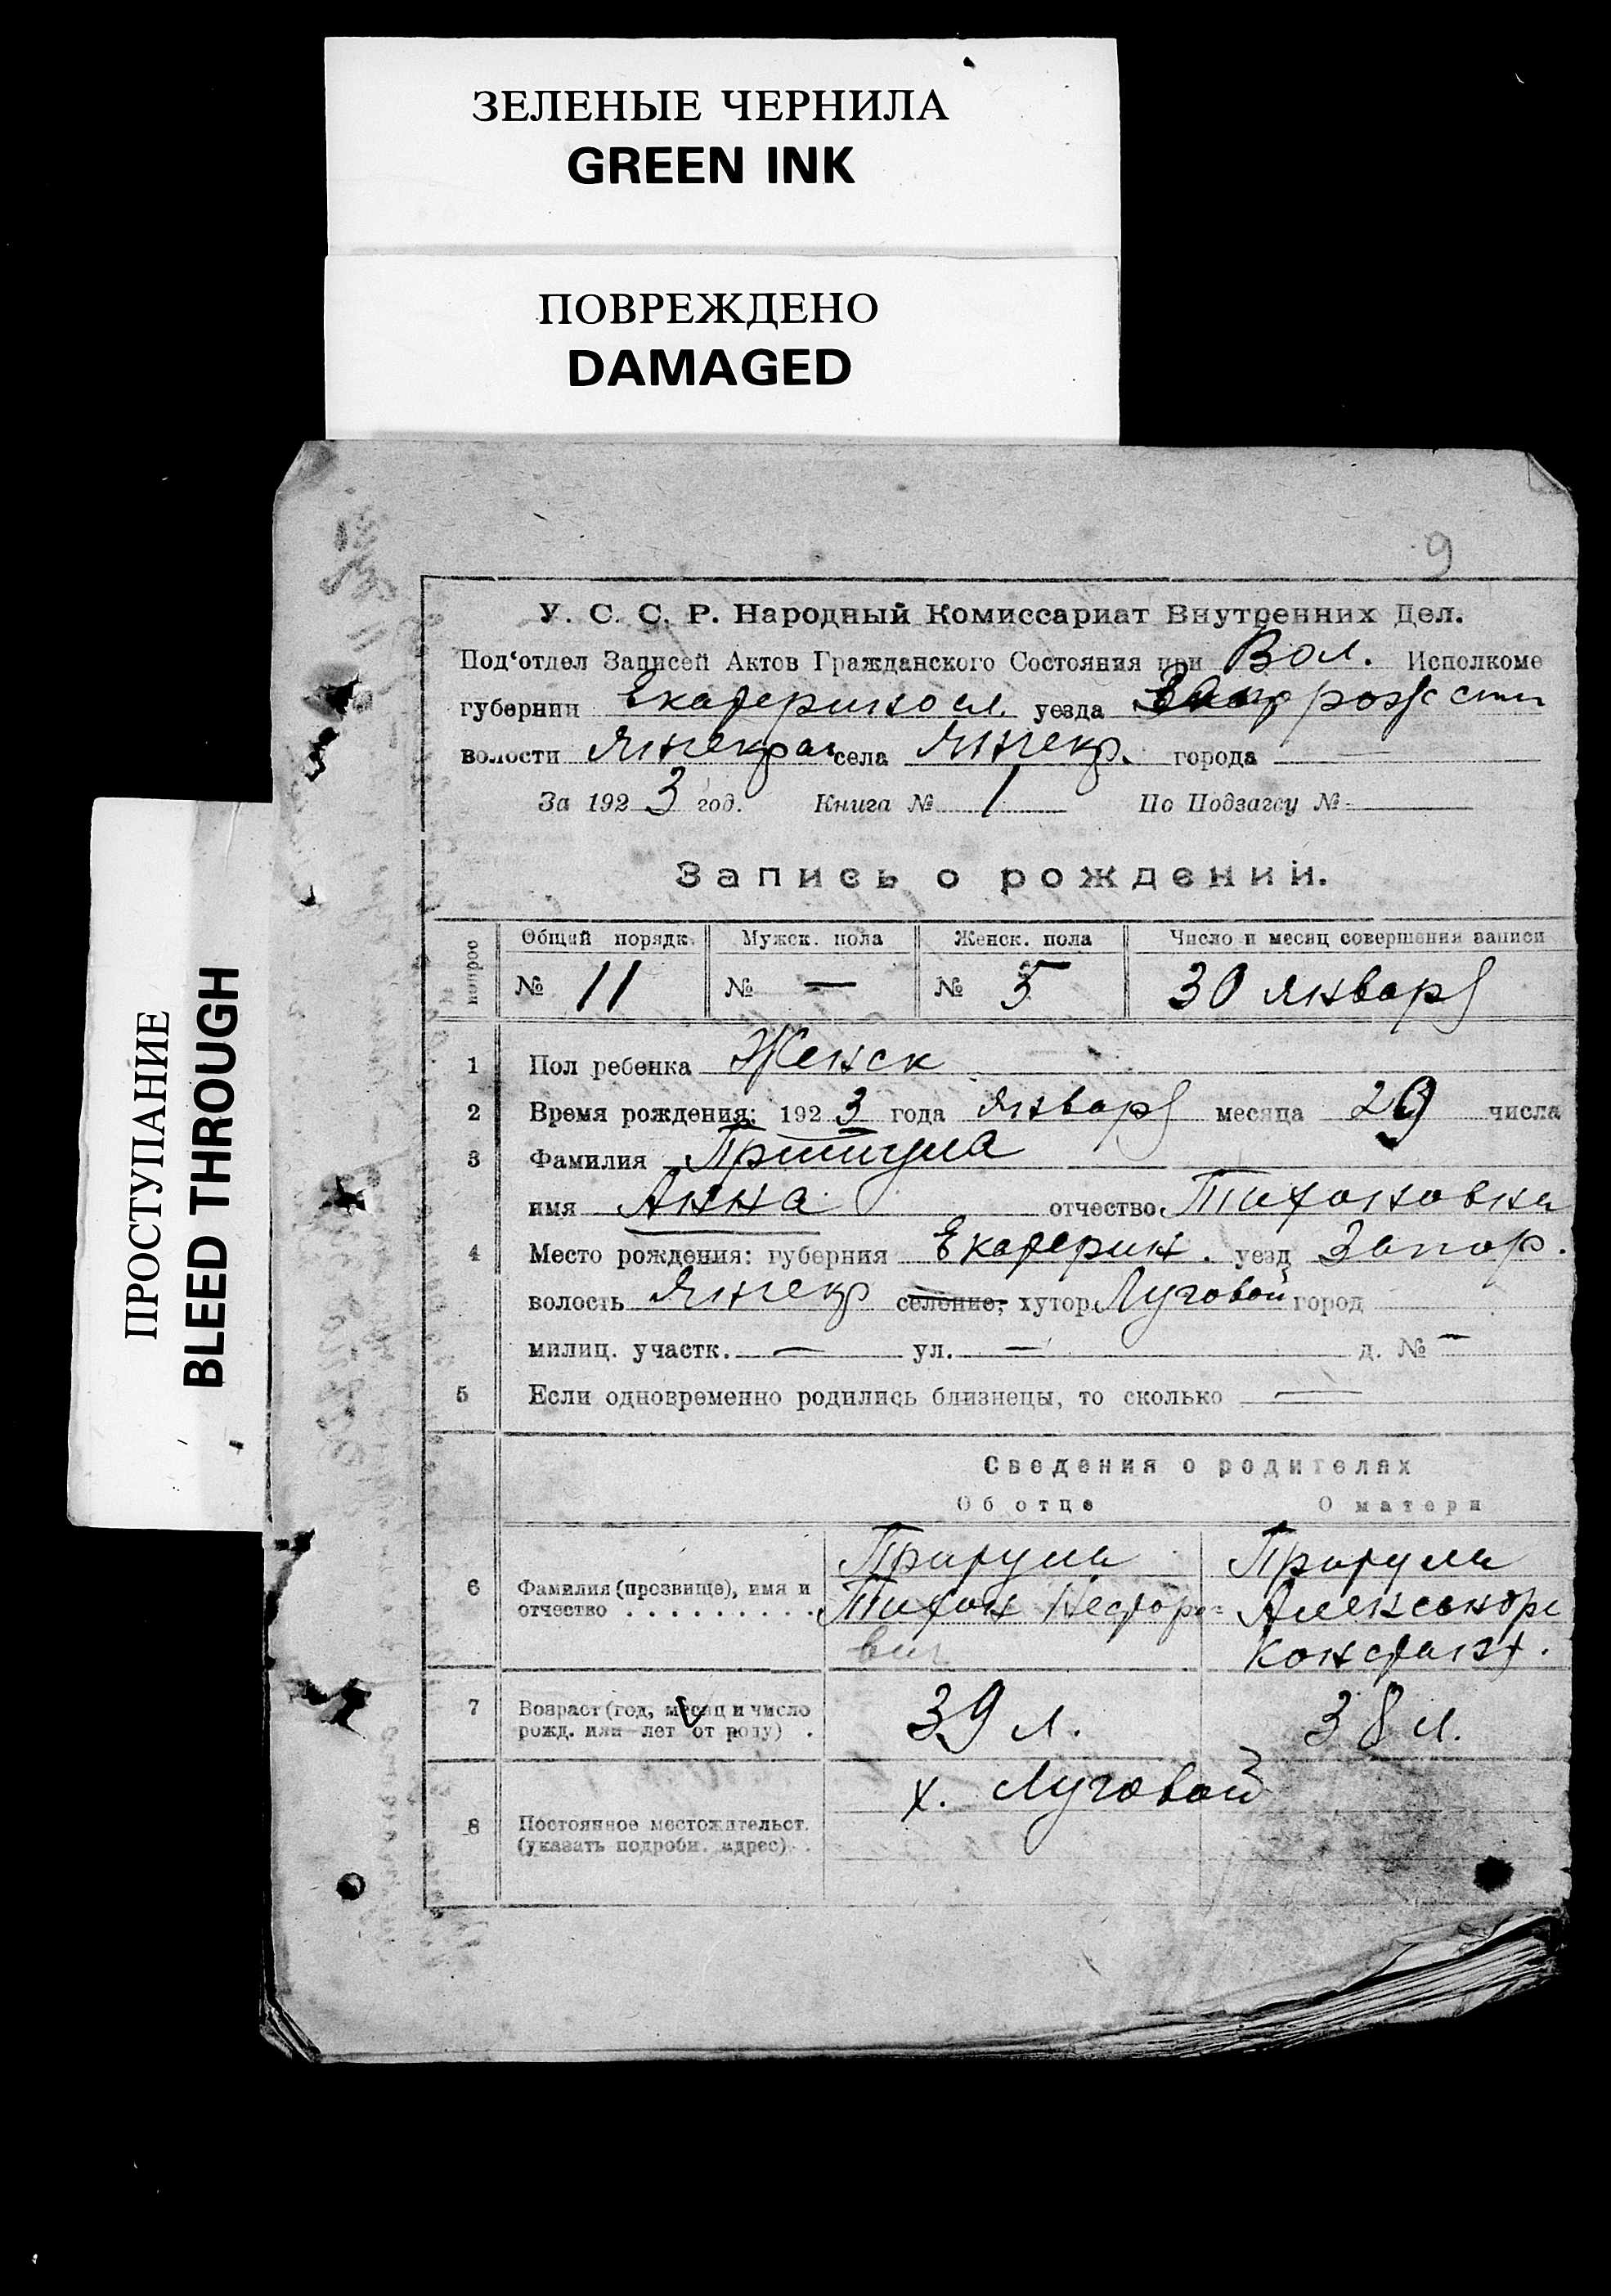 ЗЕЛЕНЫЕ ЧЕРНИЛА
GREEN INK
ПОВРЕЖДЕНО
DAMAGED
ПРОСТУПАНИЕ
BLEED THROUGH
9
У. С. С. Р. Народный Комиссариат Внутренних Дел.
Под‘отдел Записей Актов Гражданского Состояния при Вол. Исполкоме
губернии Екатериносл. уезда Запорожск
волости Янчекрак села Янчекр. города —
За 1923 год. Книга № 1 По Подзагсу №
Запись о рождении.
вопрос Общий порядк. Мужск. пола Женск. пола Число и месяц совершения записи
№ 11 № — № 5 30 января
1 Пол ребенка Женск
2 Время рождения: 1923 года января месяца 29 числа
3 Фамилия Притула
имя Анна отчество Тихоновна
4 Место рождения: губерния Екатерин. уезд Запор.
волость Янчекр селение, хутор Луговой город
милиц. участк. — ул. — д. № —
5 Если одновременно родились близнецы, то сколько —
Сведения о родителях
Об отце О матери
6 Фамилия (прозвище), имя и отчество . . . . . . . . . .
Притула Притула
Тихон Несторо= Александра
вич Констант.
7 Возраст (год, месяц и число рожд. или лет от роду) . 39 л. 38 л.
8 Постоянное местожительст. (указать подробн. адрес) . х. Луговой